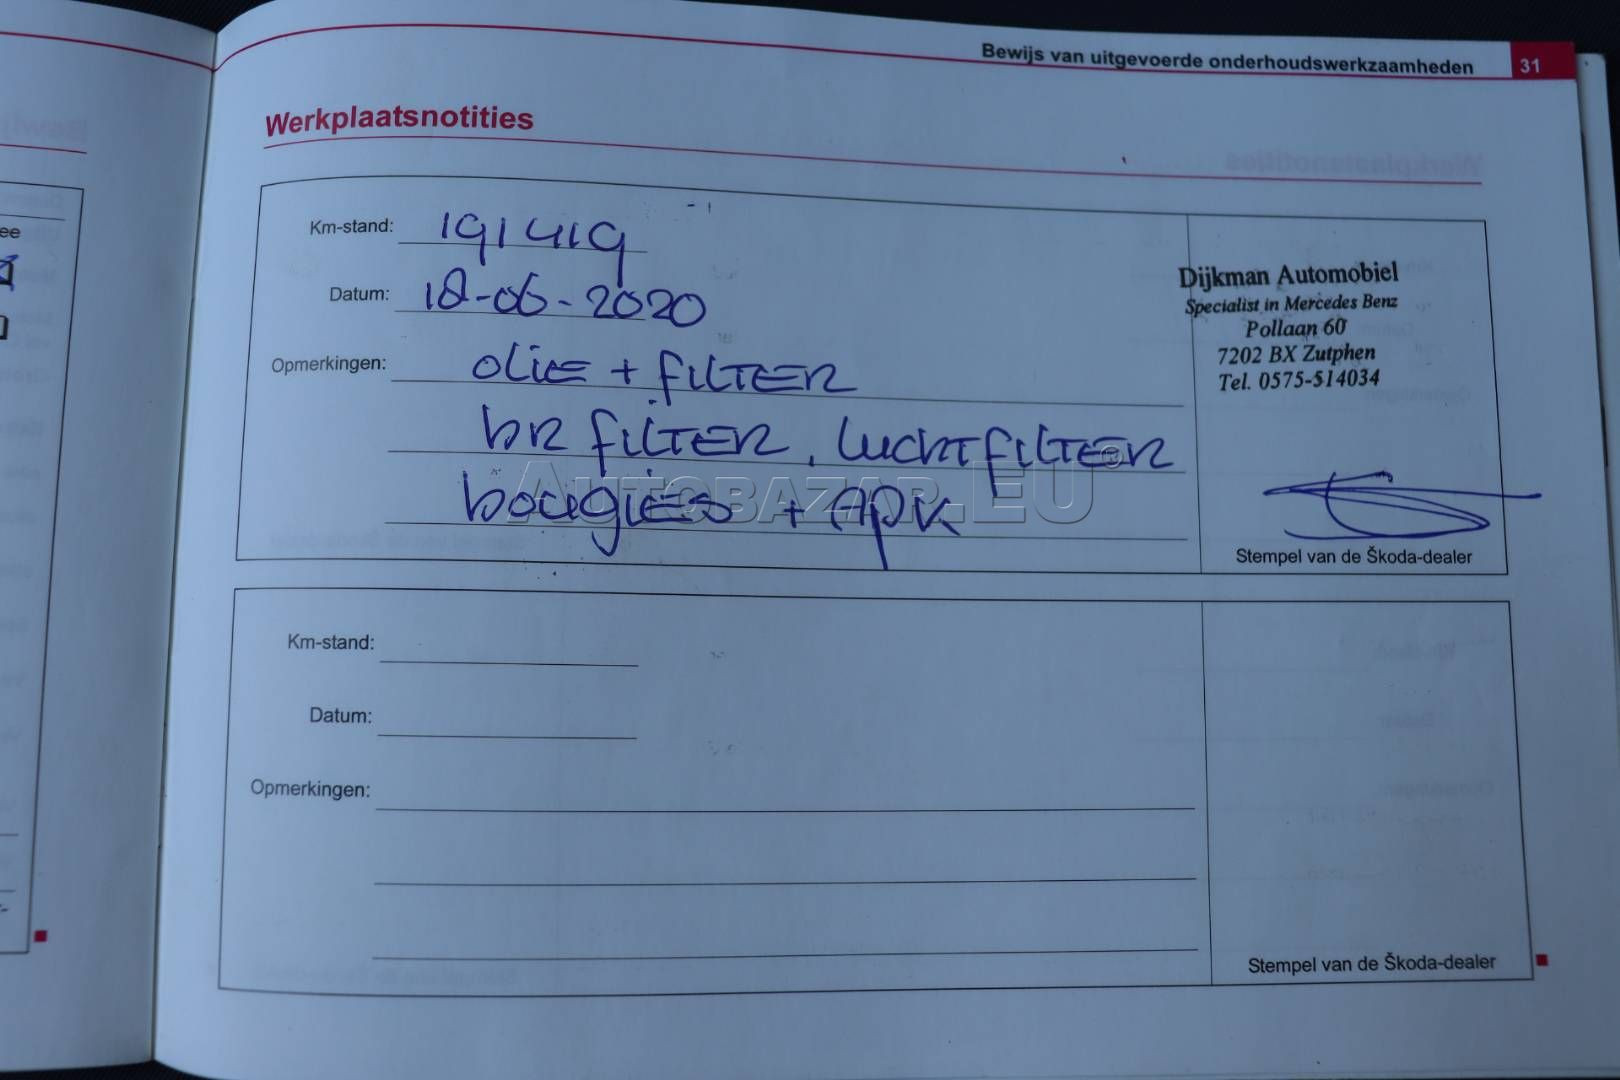 Bewijs van uitgevoerde onderhoudswerkzaamheden 31
Werkplaatsnotities
ee
Km-stand: 191419
Datum: 18-06-2020
Opmerkingen: olie + filter
br filter, luchtfilter
bougies + APK
Dijkman Automobiel
Specialist in Mercedes Benz
Pollaan 60
7202 BX Zutphen
Tel. 0575-514034
Stempel van de Škoda-dealer
AUTOBAZAR.EU®
Km-stand:
Datum:
Opmerkingen:
Stempel van de Škoda-dealer